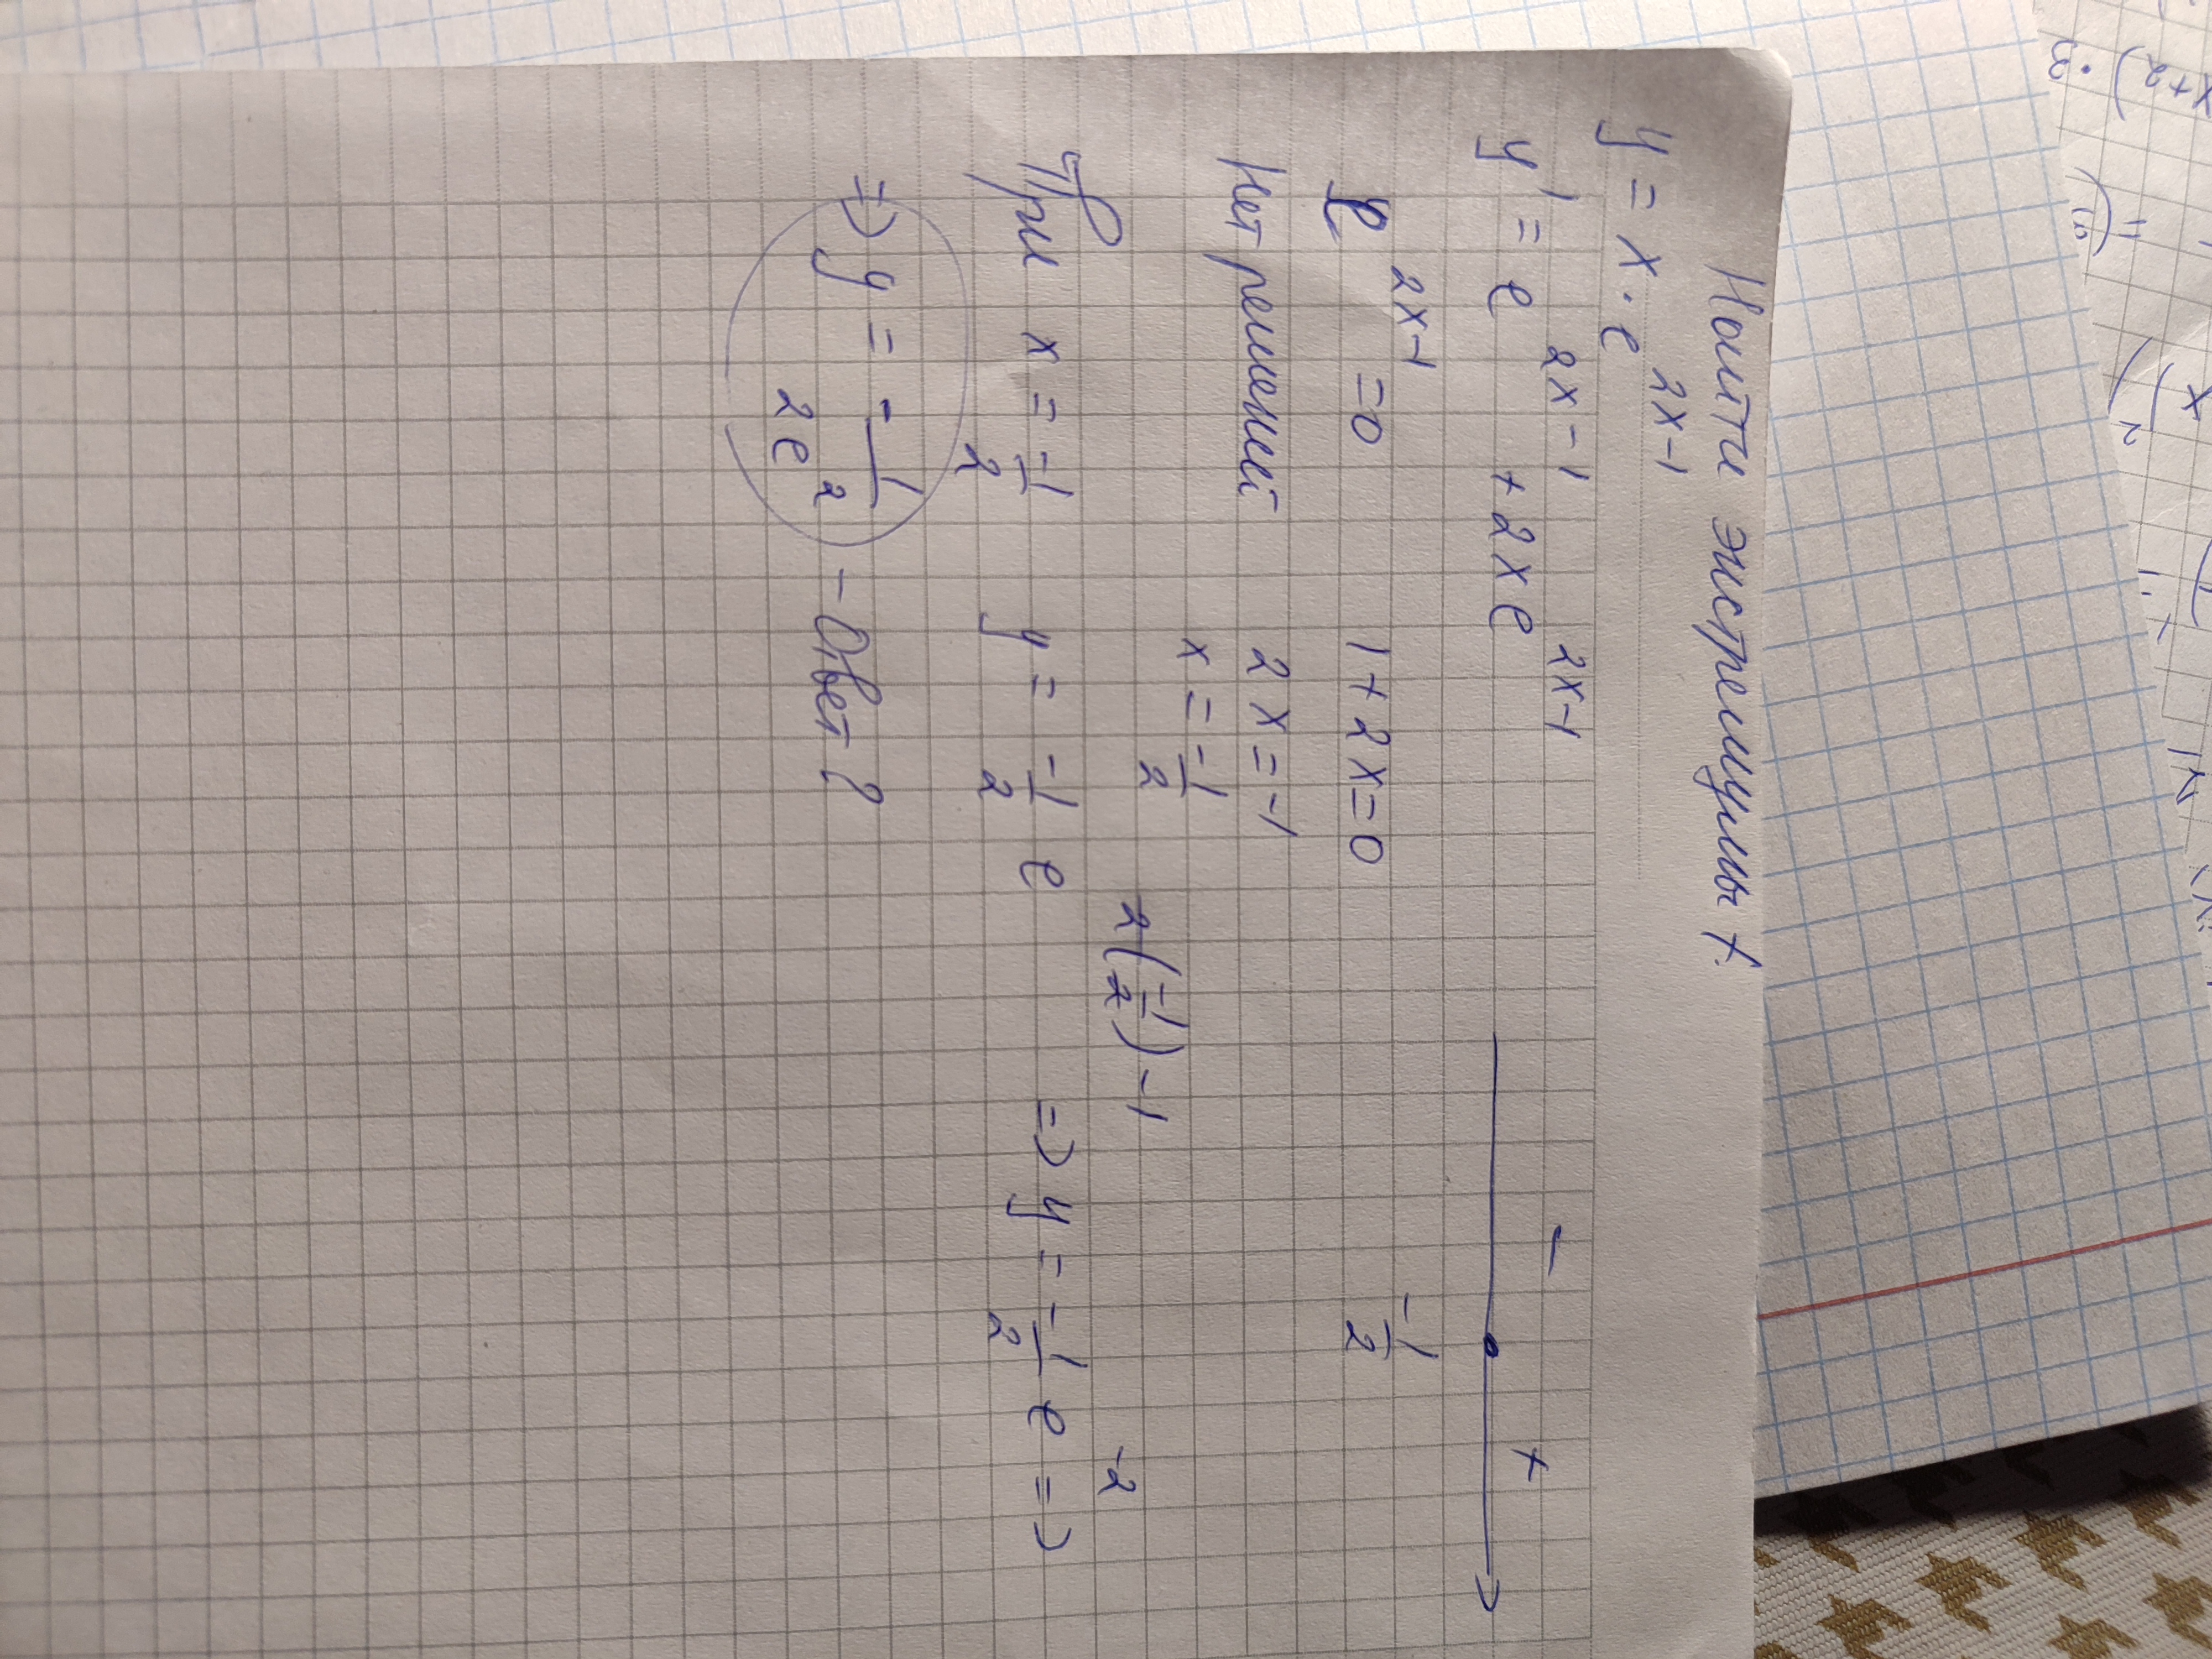 Найти экстремумы f.
y = x · e^(2x-1)
y' = e^(2x-1) + 2xe^(2x-1)
- +
-1/2
e^(2x-1) = 0 1 + 2x = 0
Нет решений 2x = -1
x = -1/2
При x = -1/2 y = -1/2 e^(2(-1/2)-1) => y = -1/2 e^(-2) =>
=> y = -1/(2e^2) - Ответ?